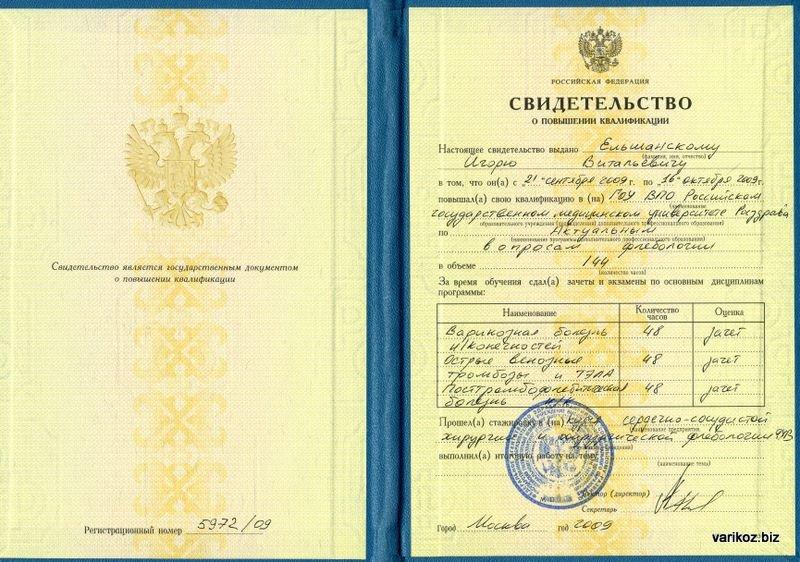 Свидетельство является государственным документом
о повышении квалификации
Регистрационный номер 5972/09
РОССИЙСКАЯ ФЕДЕРАЦИЯ
СВИДЕТЕЛЬСТВО
О ПОВЫШЕНИИ КВАЛИФИКАЦИИ
Настоящее свидетельство выдано Ельшанскому
(фамилия, имя, отчество)
Игорю Витальевичу
в том, что он(а) с "21" сентября 2009 г. по "16" октября 2009 г.
повышал(а) свою квалификацию в (на) ГОУ ВПО Российском
(наименование
государственном медицинском университете Росздрава
образовательного учреждения (подразделения) дополнительного профессионального образования)
по Актуальным
(наименование программы дополнительного профессионального образования)
вопросам флебологии
в объеме 144
(количество часов)
За время обучения сдал(а) зачеты и экзамены по основным дисциплинам
программы:
Наименование Количество часов Оценка
Варикозная болезнь 48 зачет
н/конечностей
Острые венозные 48 зачет
тромбозы и ТЭЛА
Посттромбофлебитическая 48 зачет
болезнь н/к
Прошел(а) стажировку в (на) сердечно-сосудистой
(наименование предприятия,
хирургии и хирургической флебологии ФУВ
выполнил(а) итоговую работу на тему:
(наименование темы)
Ректор (директор)
Секретарь
Город Москва год 2009
varikoz.biz